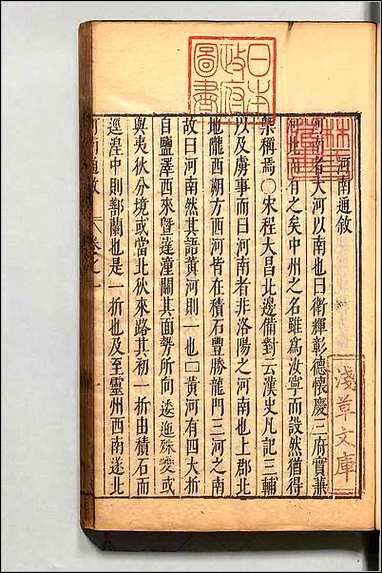 日本
政府
圖書
淺草文庫
河南通敘
河南者大河以南也曰衛輝彰德懷慶三府實兼
河北而有之矣中州之名雖爲汝寧而設然猶得
槩稱焉○宋程大昌北邊備對云漢史凡記三輔
以及虜事而曰河南者非洛陽之河南也上郡北
地隴西朔方西河皆在積石豐勝龍門三河之南
故曰河南然其語黃河則一也□黃河有四大折
自鹽澤西來暨達潼關其面勢所向逶迤殊變或
與夷狄分境或當北狄來路其初一折由積石而
逕湟中則鄯蘭也是一折也及至靈州西南遂北